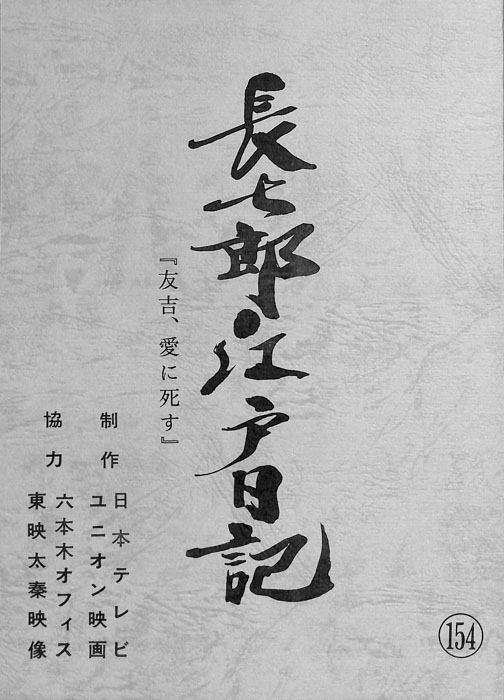 長七郎江戸日記
『友吉、愛に死す』
制作
日本テレビ
ユニオン映画
協力
六本木オフィス
東映太秦映像
154